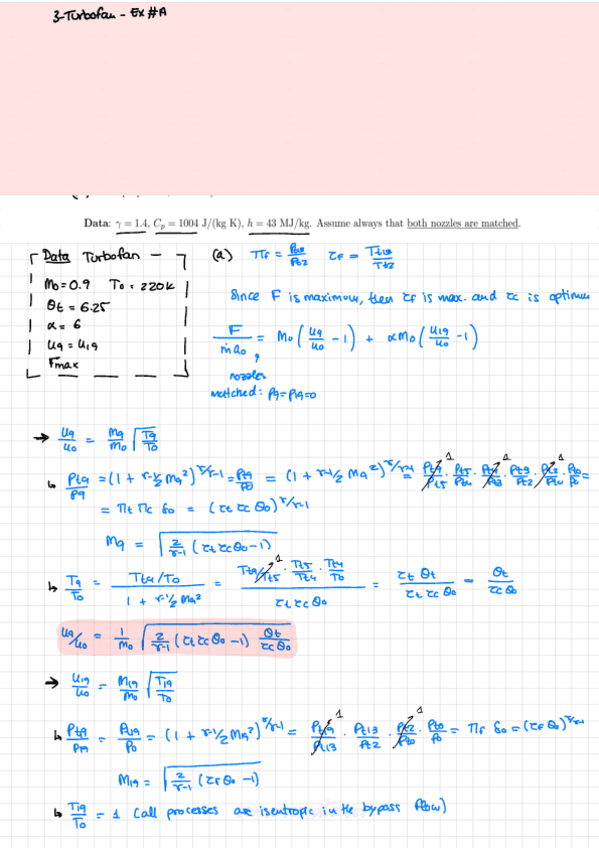 3-Turbofan - Ex #A
Data: γ = 1.4, Cp = 1004 J/(kg K), h = 43 MJ/kg. Assume always that both nozzles are matched.
Data Turbofan -
M0 = 0.9 T0 = 220K
θt = 6.25
α = 6
u9 = u19
Fmax
(a) πf = Pt13/Pt2 τf = Tt13/Tt2
Since F is maximum, then τf is max. and τc is optimum
F/ṁa0 = M0 (u9/u0 - 1) + αM0 (u19/u0 - 1)
nozzles
matched: p9=p19=0
→ u9/u0 = M9/M0 √(T9/T0)
↳ Pt9/P9 = (1 + γ-1/2 M9²)^γ/γ-1 = Pt9/P0 = (1 + γ-1/2 M9²)^γ/γ-1 = Pt9/Pt5 · Pt5/Pt4 · Pt4/Pt3 · Pt3/Pt2 · Pt2/Pt0 · Pt0/P0 =
= πt πc δ0 = (τt τc θ0)^γ/γ-1
M9 = √(2/γ-1 (τt τc θ0 - 1))
↳ T9/T0 = (Tt9/T0)/(1 + γ-1/2 M9²) = (Tt9/Tt5 · Tt5/Tt4 · Tt4/T0)/(τt τc θ0) = τt θt/τt τc θ0 = θt/τc θ0
u9/u0 = 1/M0 √(2/γ-1 (τt τc θ0 - 1) θt/τc θ0)
→ u19/u0 = M19/M0 √(T19/T0)
↳ Pt19/P19 = Pt19/P0 = (1 + γ-1/2 M19²)^γ/γ-1 = Pt19/Pt13 · Pt13/Pt2 · Pt2/Pt0 · Pt0/P0 = πf δ0 = (τf θ0)^γ/γ-1
M19 = √(2/γ-1 (τf θ0 - 1))
↳ T19/T0 = 1 (all processes are isentropic in the bypass flow)